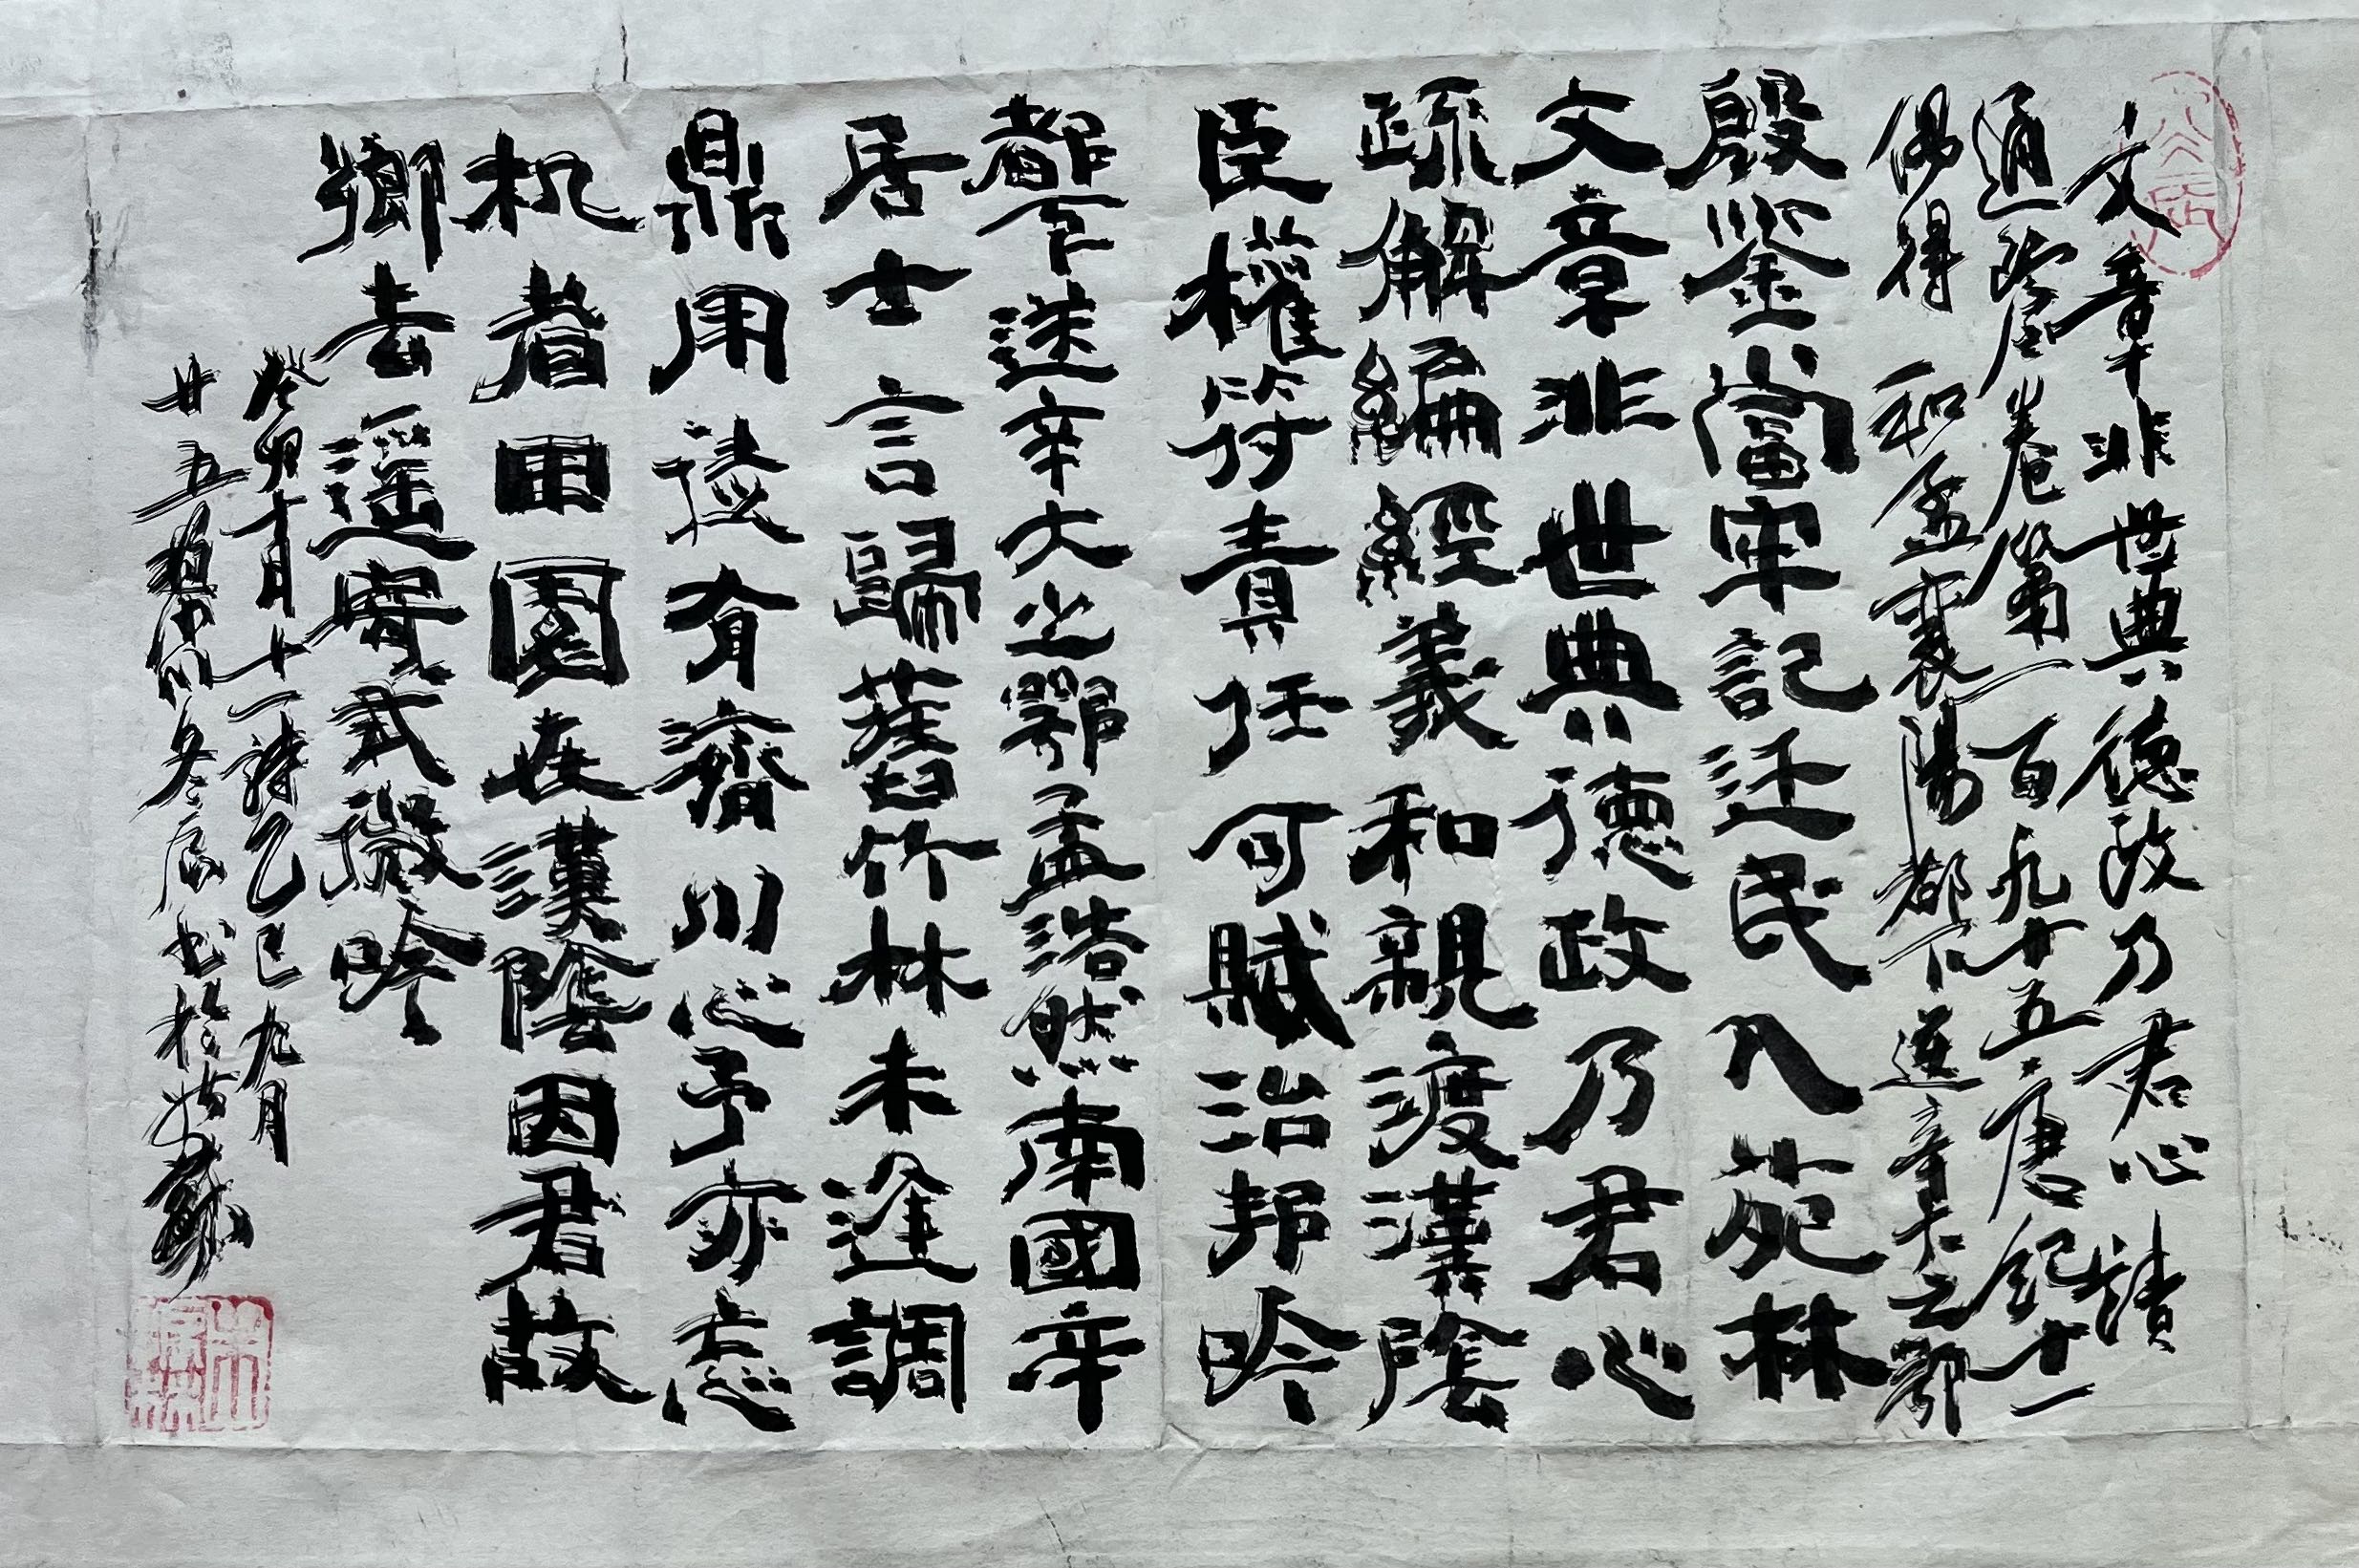 文章非世典德政乃君心讀
通鑒卷第一百九十五唐紀十一
偶得 和孟襄陽都下送辛大之鄂
殷鑒當牢記迁民入苑林
文章非世典德政乃君心
疏解編經義和親渡漢陰
臣權符責任可賦治邦吟
都下送辛大之鄂孟浩然南國辛
居士言歸舊竹林未逢調
鼎用徒有濟川心予亦忘
机者田園在漢陰因君故
鄉去遥寄式微吟
癸卯十月十一詩乙巳九月
廿五冬辰书於